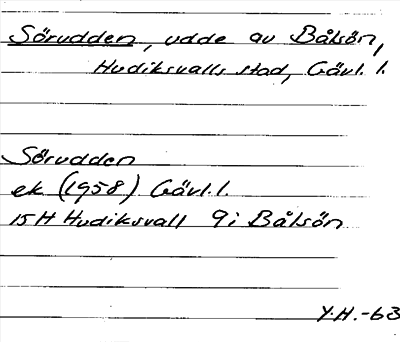 Sörudden, udde av Bålsön,
Hudiksvalls stad, Gävl. l.
Sörudden
ek (1958) Gävl. l.
15H Hudiksvall 9i Bålsön
Y.H.-63